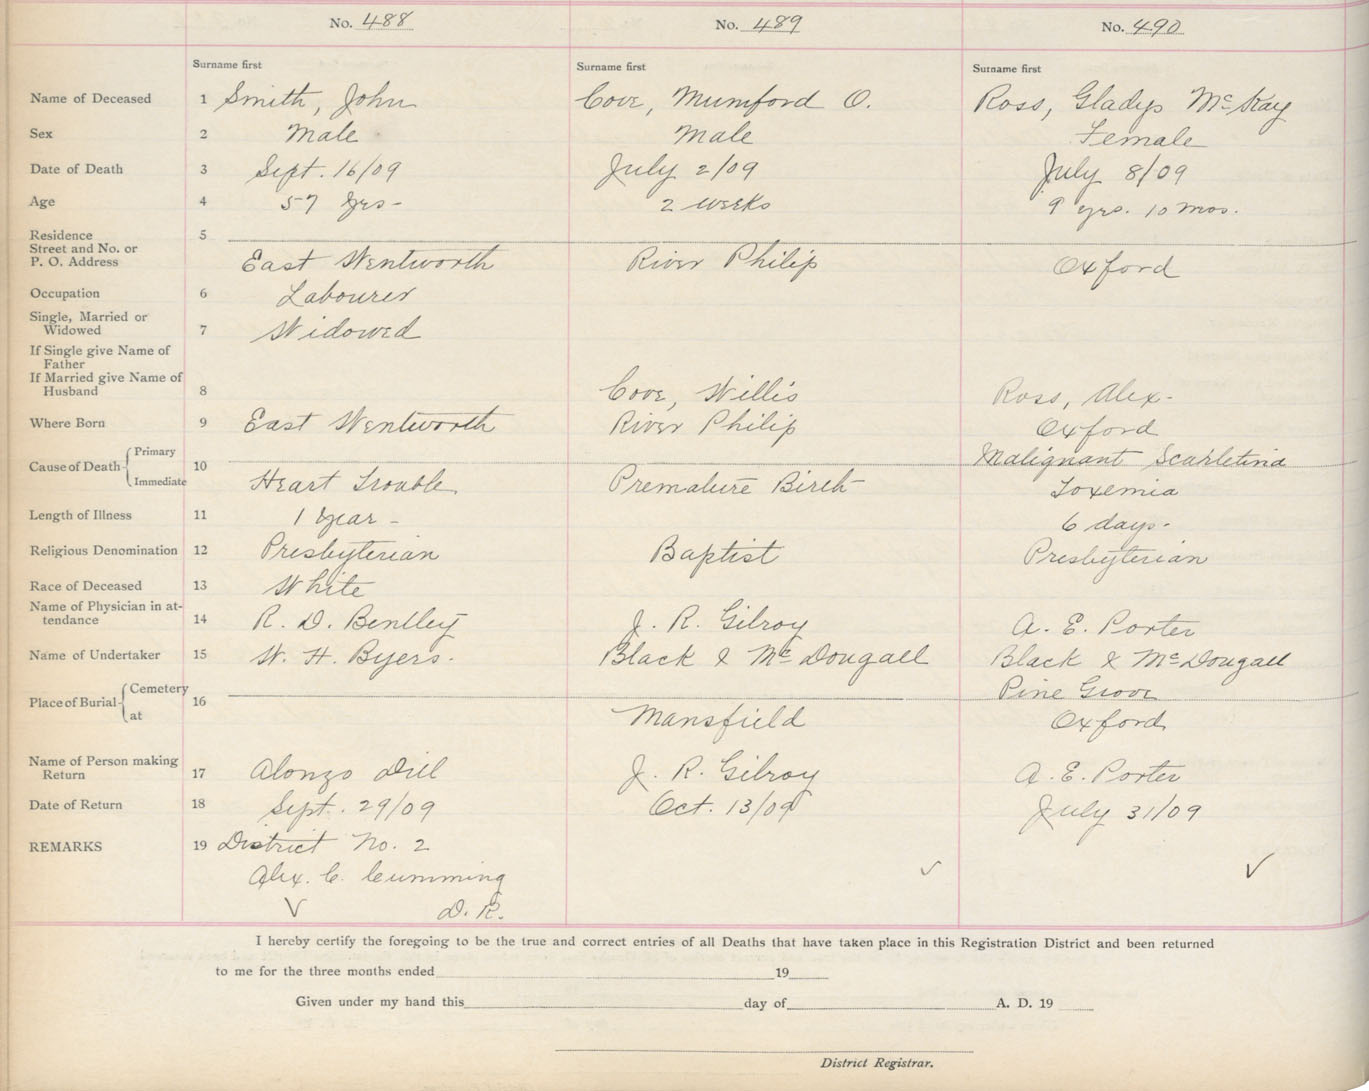 No. 488 No. 489 No. 490
Surname first Surname first Surname first
Name of Deceased 1 Smith, John Cove, Mumford O. Ross, Gladys McKay
Sex 2 Male Male Female
Date of Death 3 Sept. 16/09 July 2/09 July 8/09
Age 4 57 yrs- 2 weeks 9 yrs. 10 mos.
Residence 5
Street and No. or
P. O. Address East Wentworth River Philip Oxford
Occupation 6 Labourer
Single, Married or
Widowed 7 Widowed
If Single give Name of
Father
If Married give Name of
Husband 8 Cove, Willis Ross, Alex-
Where Born 9 East Wentworth River Philip Oxford
Cause of Death Primary 10 Malignant Scarletina
Immediate Heart Trouble Premature Birth Toxemia
Length of Illness 11 1 year - 6 days-
Religious Denomination 12 Presbyterian Baptist Presbyterian
Race of Deceased 13 White
Name of Physician in at-
tendance 14 R. D. Bentley J. R. Gilroy A. E. Porter
Name of Undertaker 15 W. H. Byers. Black & McDougall Black & McDougall
Place of Burial Cemetery 16 Pine Grove
at Mansfield Oxford
Name of Person making
Return 17 Alonzo Dill J. R. Gilroy A. E. Porter
Date of Return 18 Sept. 29/09 Oct. 13/09 July 31/09
REMARKS 19 District No. 2
Alex. C. Cumming
D. R.
I hereby certify the foregoing to be the true and correct entries of all Deaths that have taken place in this Registration District and been returned
to me for the three months ended 19
Given under my hand this day of A. D. 19
District Registrar.